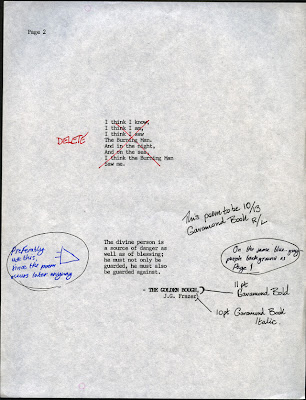 Page 2
I think I know,
I think I am,
I think I saw
The Burning Man.
And in the night,
And on the sea,
I think the Burning Man
Saw me.
DELETE
This poem to be 10/13
Garamond Book
R/L
The divine person is
a source of danger as
well as of blessing;
he must not only be
guarded, he must also
be guarded against.
- THE GOLDEN BOUGH,
J.G. Frazer
Preferably
use this,
since the poem
occurs later anyway
On the same blue-grey
purple background as
Page 1
11pt
Garamond Bold
10pt Garamond Book
Italic.